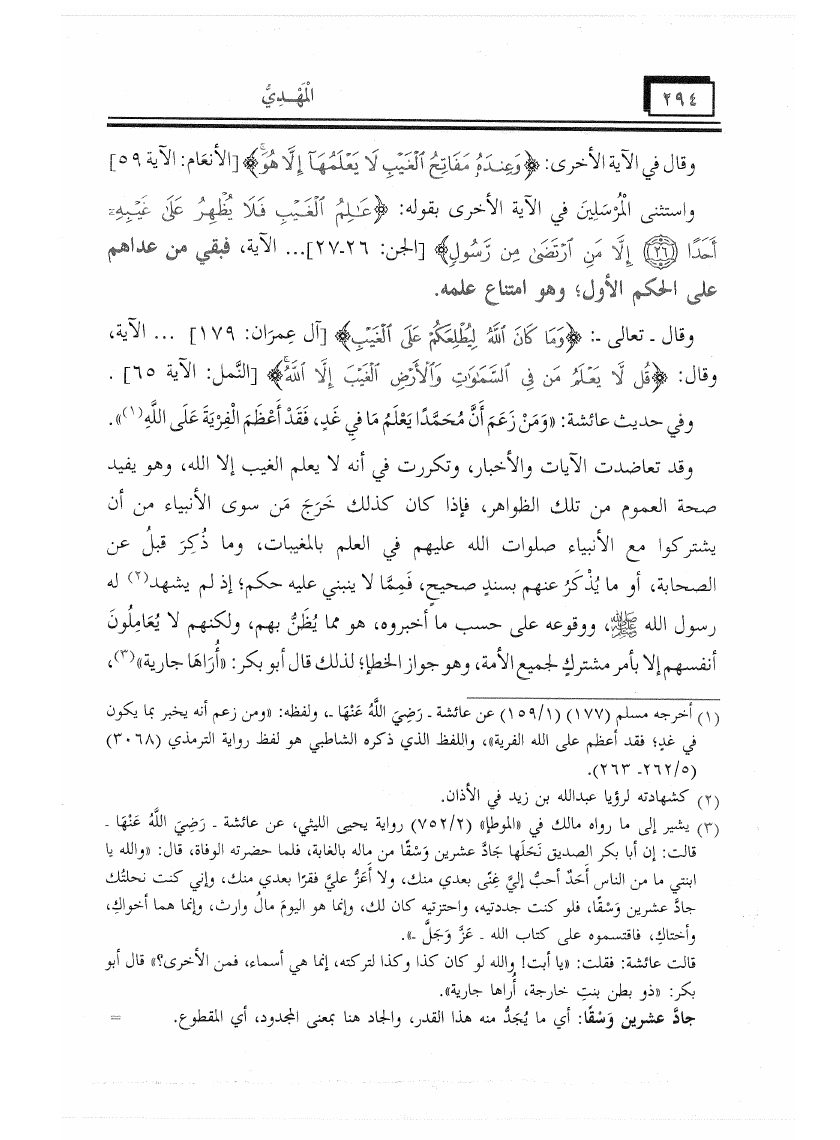 ٢٩٤
الْمَهْدِيُّ
وقال في الآية الأخرى: ﴿وَعِندَهُۥ مَفَاتِحُ ٱلْغَيْبِ لَا يَعْلَمُهَآ إِلَّا هُوَۚ﴾ [الأنعَام: الآية ٥٩]
واستثنى الْمُرْسَلِينَ في الآية الأخرى بقوله: ﴿عَـٰلِمُ ٱلْغَيْبِ فَلَا يُظْهِرُ عَلَىٰ غَيْبِهِۦٓ
أَحَدًا ﴿٢٦﴾ إِلَّا مَنِ ٱرْتَضَىٰ مِن رَّسُولٍ﴾ [الجن: ٢٦-٢٧]... الآية، فبقي من عداهم
على الحكم الأول؛ وهو امتناع علمه.
وقال ـ تعالى ـ: ﴿وَمَا كَانَ ٱللَّهُ لِيُطْلِعَكُمْ عَلَى ٱلْغَيْبِ﴾ [آل عِمرَان: ١٧٩] ... الآية،
وقال: ﴿قُل لَّا يَعْلَمُ مَن فِى ٱلسَّمَـٰوَٰتِ وَٱلْأَرْضِ ٱلْغَيْبَ إِلَّا ٱللَّهُۚ﴾ [النَّمل: الآية ٦٥] .
وفي حديث عائشة: «وَمَنْ زَعَمَ أَنَّ مُحَمَّدًا يَعْلَمُ مَا فِي غَدٍ، فَقَدْ أَعْظَمَ الْفِرْيَةَ عَلَى اللَّهِ (١)».
وقد تعاضدت الآيات والأخبار، وتكررت في أنه لا يعلم الغيب إلا الله، وهو يفيد
صحة العموم من تلك الظواهر، فإذا كان كذلك خَرَجَ مَن سوى الأنبياء من أن
يشتركوا مع الأنبياء صلوات الله عليهم في العلم بالمغيبات، وما ذُكِرَ قبلُ عن
الصحابة، أو ما يُذْكَرُ عنهم بسندٍ صحيحٍ، فَمِمَّا لا ينبني عليه حكم؛ إذ لم يشهد(٢) له
رسول الله ﷺ، ووقوعه على حسب ما أخبروه، هو مما يُظَنُّ بهم، ولكنهم لا يُعَامِلُونَ
أنفسهم إلا بأمر مشتركٍ لجميع الأمة، وهو جواز الخطإ؛ لذلك قال أبو بكر: «أُرَاهَا جارية»(٣)،
(١) أخرجه مسلم (١٧٧) (١٥٩/١) عن عائشة ـ رَضِيَ اللَّهُ عَنْهَا ـ، ولفظه: «ومن زعم أنه يخبر بما يكون
في غدٍ؛ فقد أعظم على الله الفرية»، واللفظ الذي ذكره الشاطبي هو لفظ رواية الترمذي (٣٠٦٨)
(٢٦٢/٥ـ ٢٦٣).
(٢) كشهادته لرؤيا عبدالله بن زيد في الأذان.
(٣) يشير إلى ما رواه مالك في «الموطإ» (٧٥٢/٢) رواية يحيى الليثي، عن عائشة ـ رَضِيَ اللَّهُ عَنْهَا ـ
قالت: إن أبا بكر الصديق نَحَلَها جَادَّ عشرين وَسْقًا من ماله بالغابة، فلما حضرته الوفاة، قال: «والله يا
ابنتي ما من الناس أَحَدٌ أحبُّ إليَّ غِنًى بعدي منك، ولا أَعَزُّ عليَّ فقرًا بعدي منك، وإني كنت نحلتُك
جادَّ عشرين وَسْقًا، فلو كنت جددتيه، واحتزتيه كان لك، وإنما هو اليومَ مالُ وارث، وإنما هما أخواكِ،
وأختاكِ، فاقتسموه على كتاب الله ـ عَزَّ وَجَلَّ ـ».
قالت عائشة: فقلت: «يا أبت! والله لو كان كذا وكذا لتركته، إنما هي أسماء، فمن الأخرى؟» قال أبو
بكر: «ذو بطن بنتِ خارجة، أُراها جارية».
جادَّ عشرين وَسْقًا: أي ما يُجَدُّ منه هذا القدر، والجاد هنا بمعنى المجدود، أي المقطوع. =